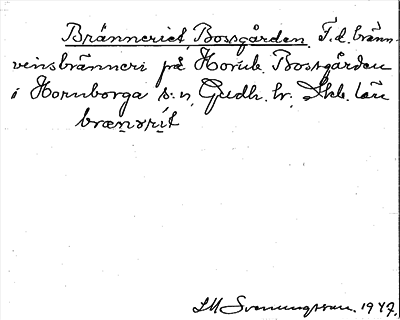 Bränneriet, Bossgården. F.d. bränn-
vinsbränneri på Bossgården
i Hornborga s:n, Gudh. hr, Skb. län
brænərit
Svenungsson. 1947.